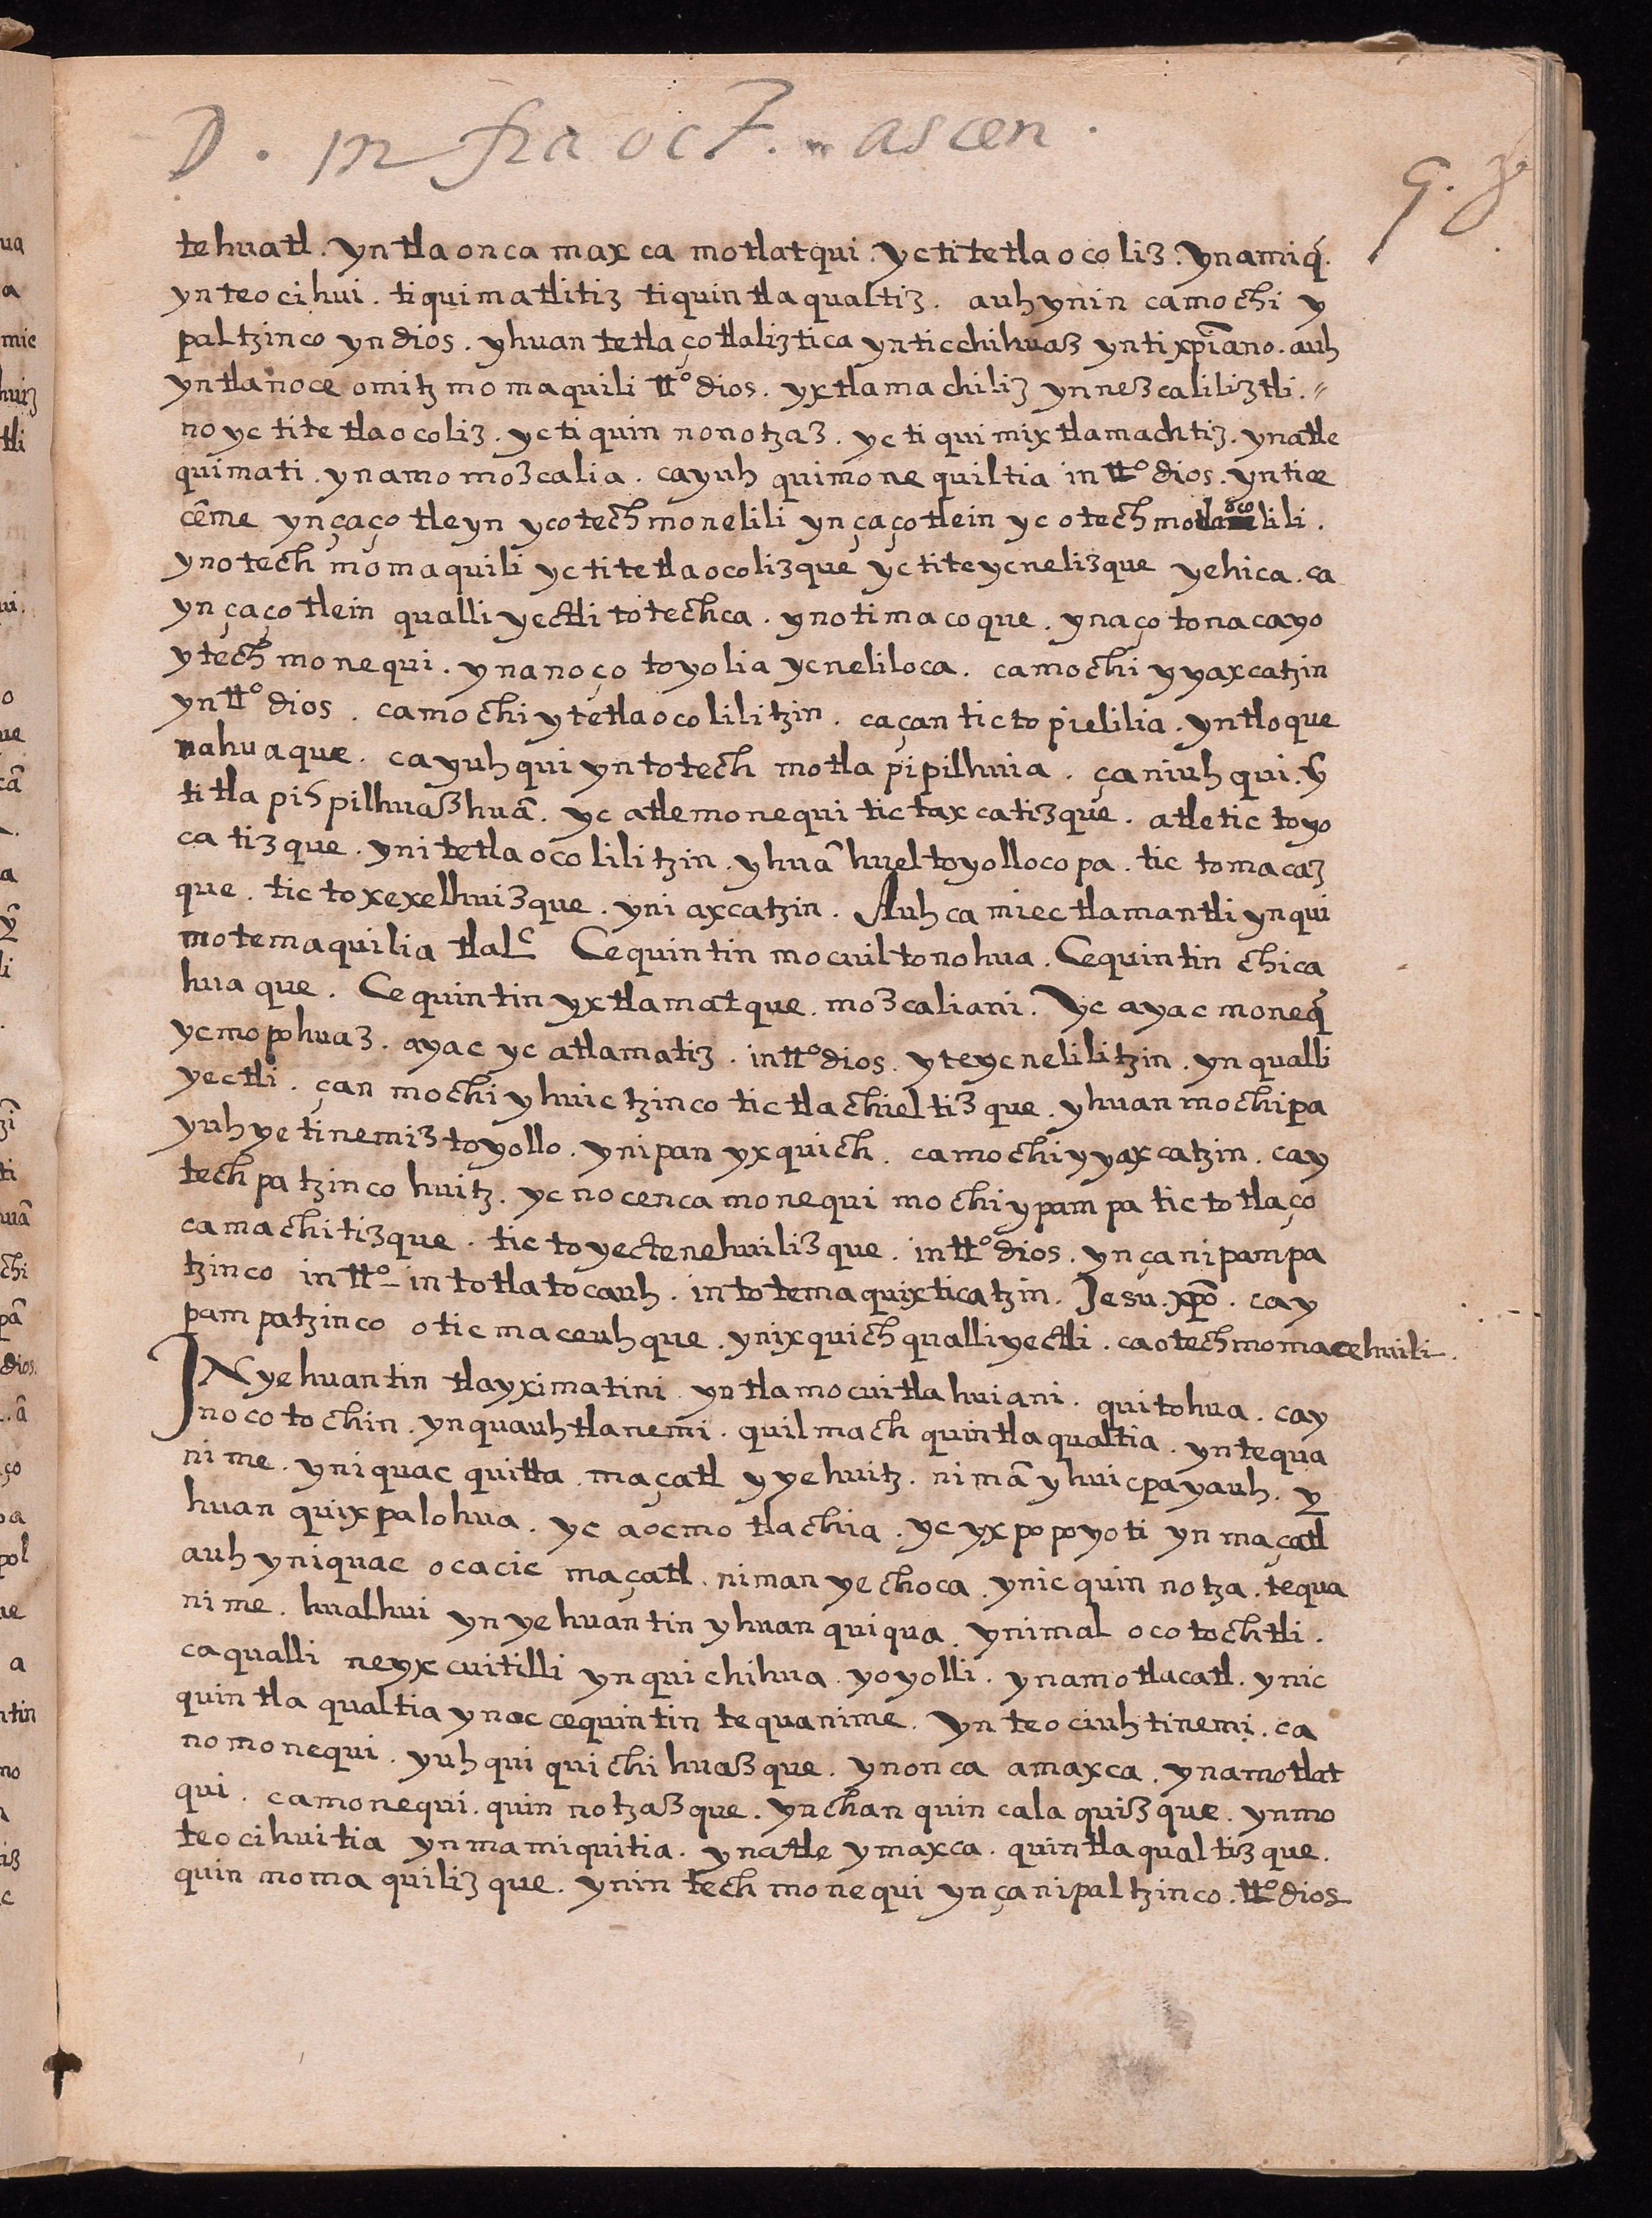 D. infra oct. ascen.
98.
tehuatl. yntla onca maxca motlatqui. yc titetlaocoliz. ynamiq́.
ynteocihui. tiquimatlitiz tiquintlaqualtiz. auh ynin camochi y
paltzinco yn dios. yhuan tetlaçotlaliztica ynticchihuaz ynti xp̃iano. auh
yntlanoce omitzmomaquili tt.º dios. yxtlamachiliz ynnezcaliliztli.〃
no yc titetlaocoliz. yc tiquinnonotzaz. yc tiquimixtlamachtiz. ynatle
quimati. ynamo mozcalia. cayuh quimonequiltia in tt.º dios. yntice
cẽme ynçaço tleyn ycotechmonelili ynçaçotlein yc otechmotlaocolili.
ynotech momaquili yc titetlaocolizque yc titeycnelizque yehica. ca
ynçaçotlein qualli yectli totechca. ynotimacoque. ynaço tonacayo
ytech monequi. ynanoço toyolia ycneliloca. camochi yyaxcatzin
yn tt.º dios. camochi ytetlaocolilitzin. caçan tictopielilia. yntloque
nahuaque. cayuhqui yntotech motlapipilhuia. çaniuhqui. ỹ
titlapispilhuazhuã. yc atle monequi tictaxcatizque. atle tictoyo
catizque. yni tetlaocolilitzin. yhuã huel toyollocopa. tictomacaz
que. tictoxexelhuizque. yni axcatzin. Auh ca miectlamantli ynqui
motemaquilia tlalᶜ Cequintin mocuiltonohua. Cequintin chica
huaque. Cequintin yxtlamatque. mozcaliani. Yc ayac moneq́
ycmopohuaz. ayac yc atlamatiz. in tt.º dios. yteycnelilitzin. ynqualli
yectli. çan mochi yhuictzinco tictlachieltizque. yhuan mochipa
yuhye tinemiz toyollo. ynipan yxquich. camochi yyaxcatzin. cay
techpatzinco huitz. yc no cenca monequi mochi ypampa tictotlaço
camachitizque. tictoyectenehuilizque. in tt.º dios. ynçanipampa
tzinco in tt.º in totlatocauh. in totemaquixticatzin. Jesu. xp̃o. cay
pampatzinco oticmaceuhque. ynixquich qualli yectli. caotechmomacehuili.
INyehuantin tlayximatini. yntlamocuitlahuiani. quitohua. cay
nocotochin. ynquauhtlanemi. quilmach quintlaqualtia. yntequa
nime. yniquac quitta. maçatl yyehuitz. nimã yhuicpayauh. y
huan quixpalohua. yc aocmo tlachia. yc yxpopoyoti ynmaçatl
auh yniquac ocacic maçatl. niman ye choca. ynic quinnotza. tequa
nime. hualhui yn yehuantin yhuan quiqua. ynimal ocotochtli.
caqualli neyxcuitilli ynquichihua. yoyolli. ynamotlacatl. ynic
quintlaqualtia ynoc cequintin tequanime. Yn teociuhtinemi. ca
nomonequi. yuhqui quichihuazque. ynonca amaxca. ynamotlat
qui. camonequi. quinnotzazque. ynchan quincalaquizque. ynmo
teocihuitia ynmamiquitia. ynatle ymaxca. quintlaqualtizque.
quinmomaquilizque. ynintech monequi ynçanipaltzinco. tt.º dios